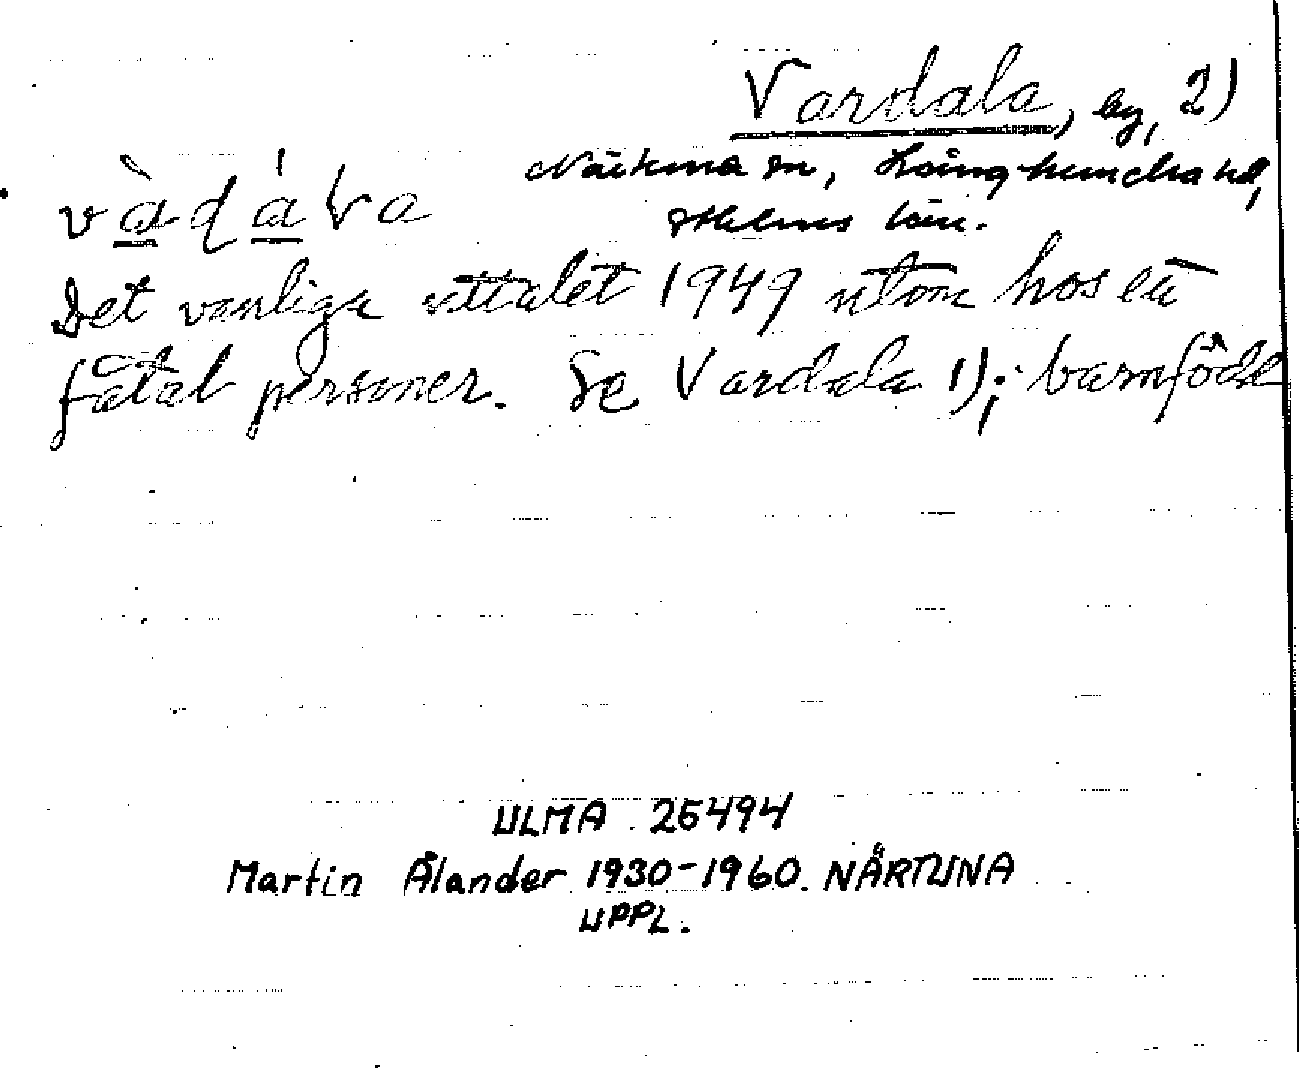 Vardala, by, 2)
Närtuna sn, Långhundra hd,
vàdáLa
Sthlms län.
Det vanliga uttalet 1949 utom hos ett
fåtal personer. Se Vardala 1); barnfödd
ULMA 26494
Martin Ålander 1930-1960. NÄRTUNA
UPPL.